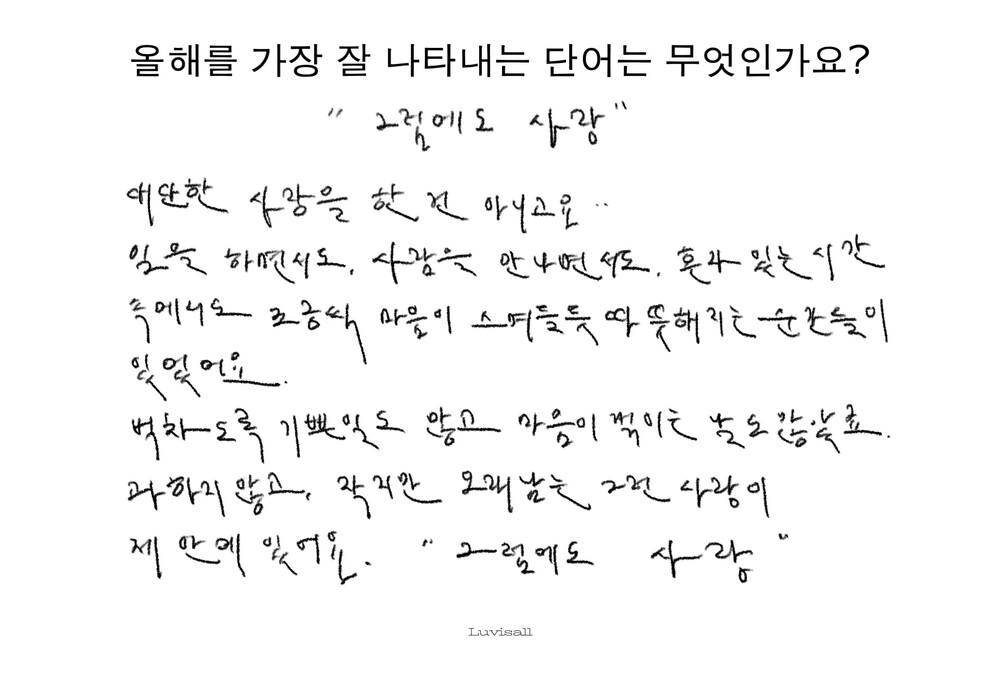 올해를 가장 잘 나타내는 단어는 무엇인가요?
"그럼에도 사랑"
대단한 사랑을 한 건 아니고요..
일을 하면서도, 사람을 만나면서도, 혼자 있는 시간
속에서도 조금씩 마음이 스며들듯 따뜻해지는 순간들이
있었어요.
벅차도록 기쁜일도 많고 마음이 꺾이는 날도 많았죠.
과하지 않고, 작지만 오래남는 그런 사랑이
제 안에 있어요. "그럼에도 사랑"
Luvisall